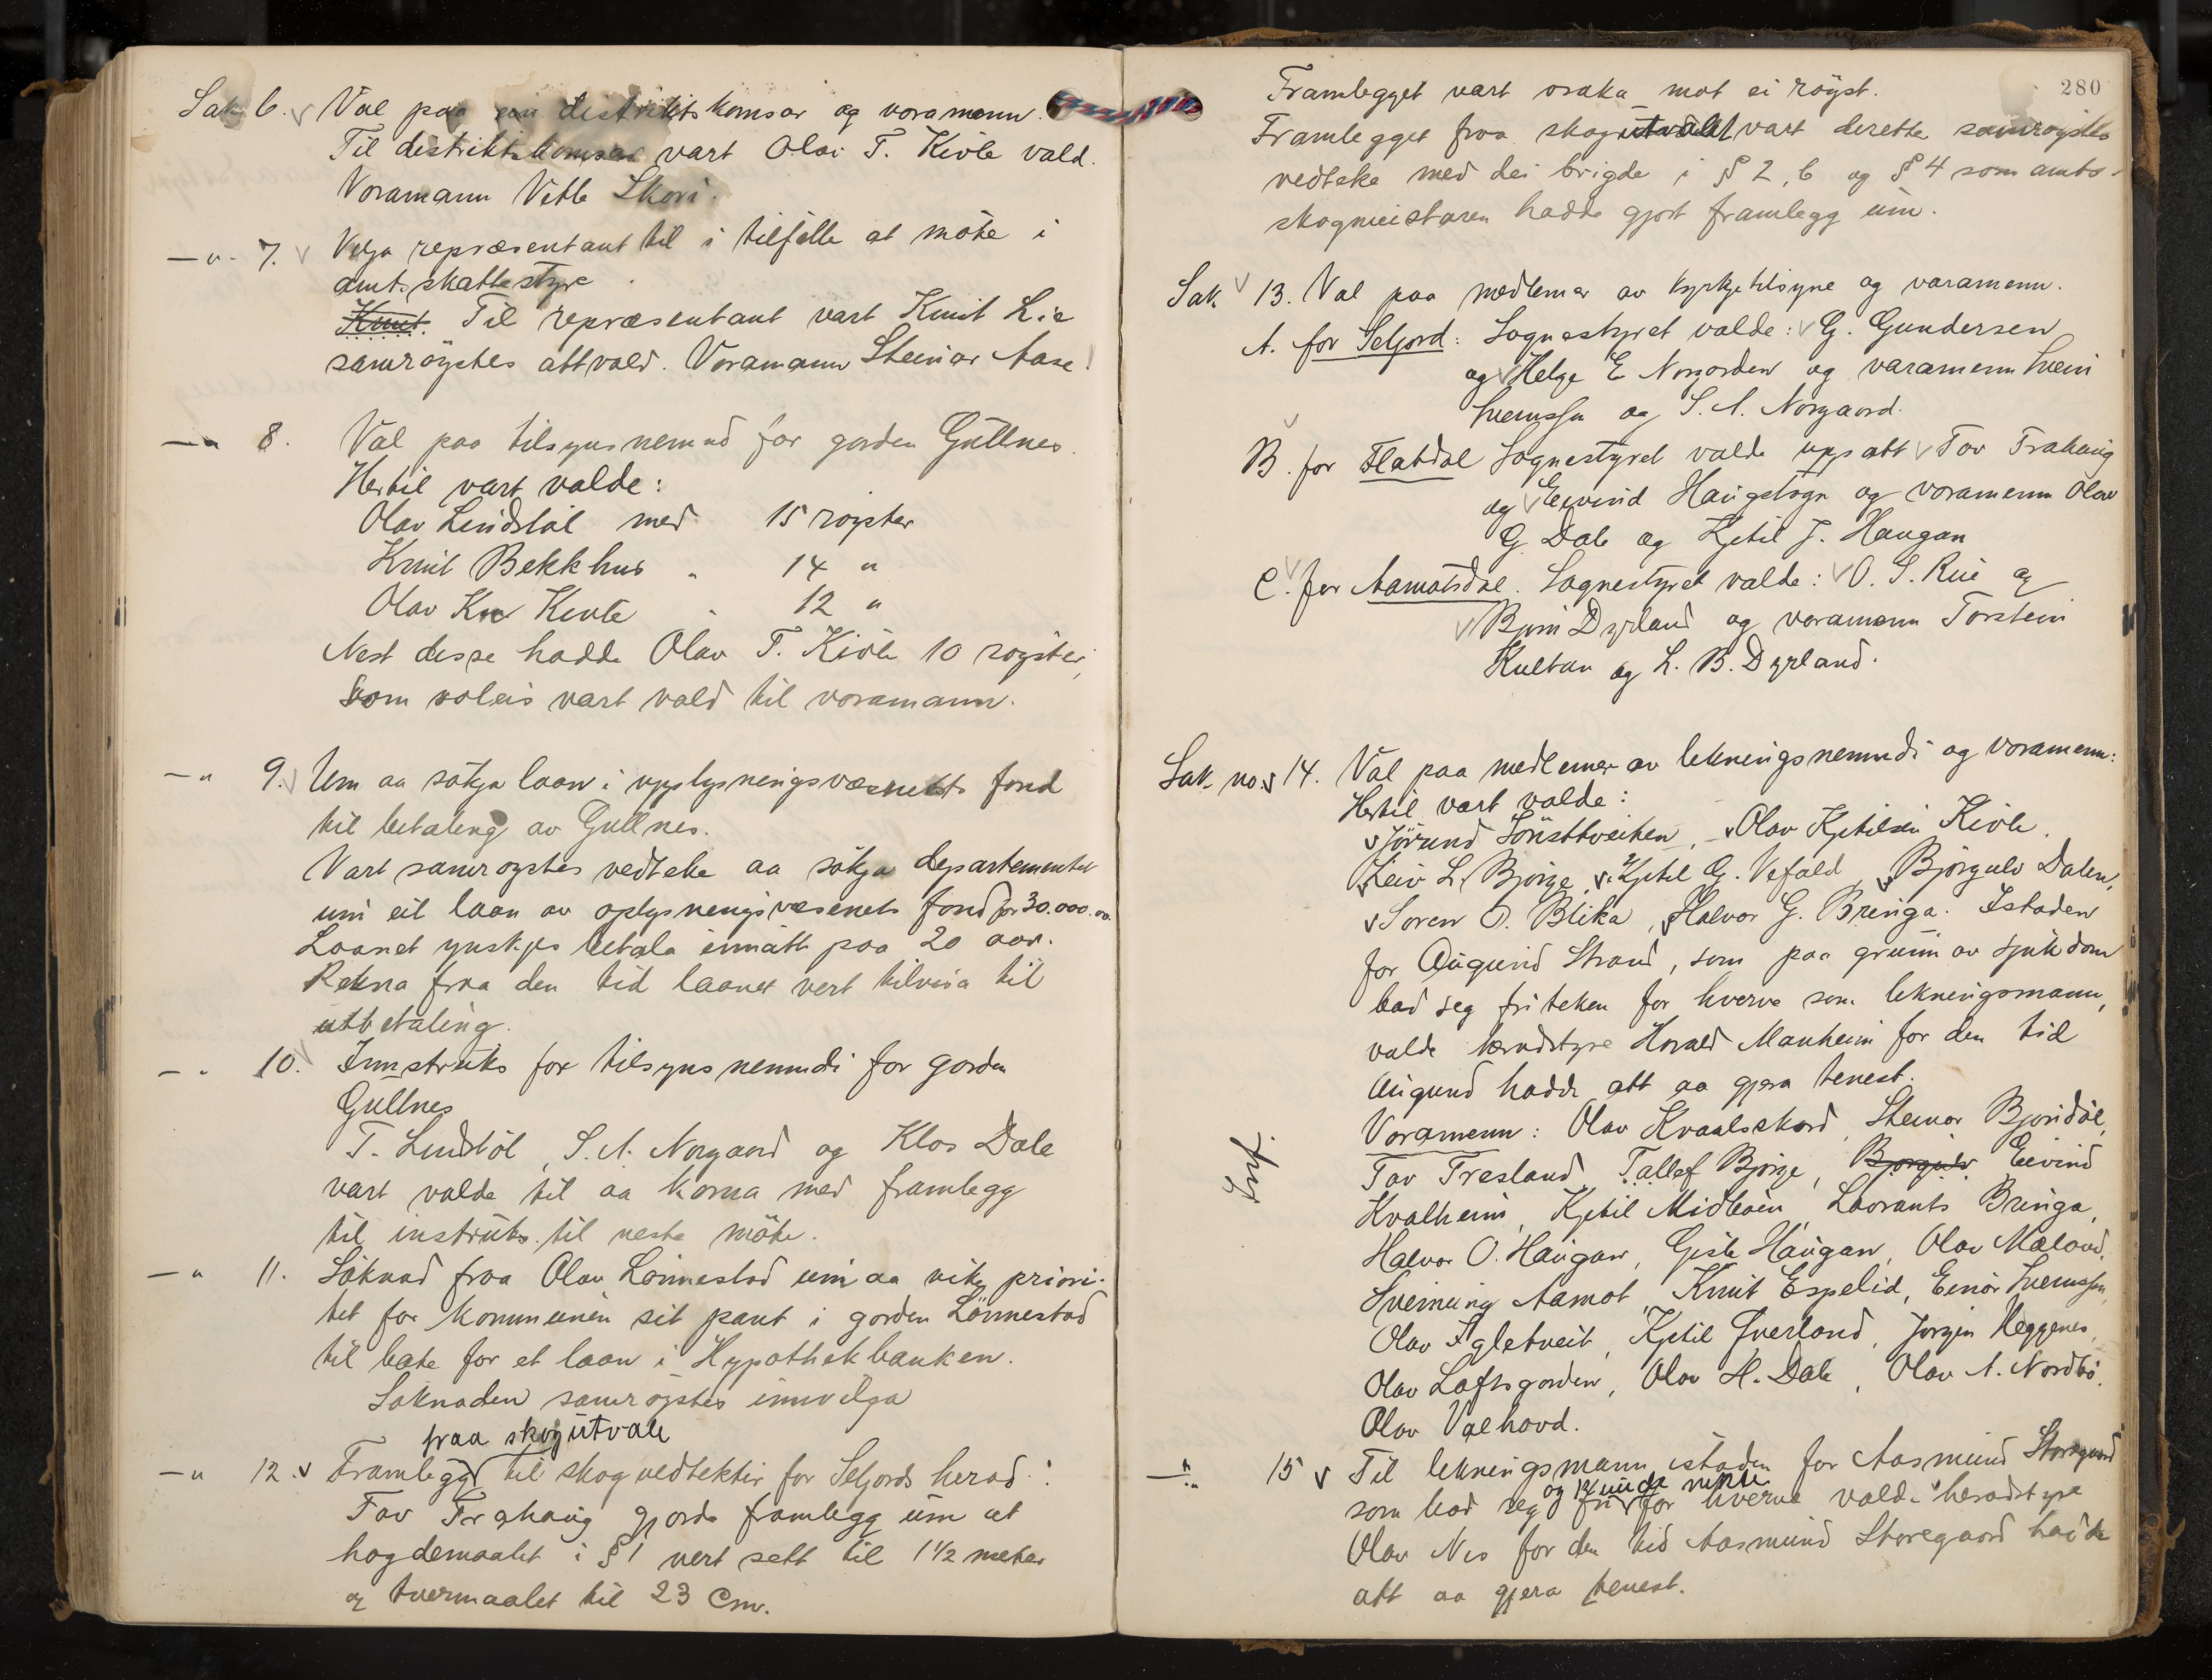 Sak 6. Val paa ein distriktskomsar og varamenn.
Til distriktskomsar vart Olav T. Kivle vald.
Varamann Vetle Skori.
—„— 7. Velja repræsentant til i tilfelle at möte i
amtsskattestyre.
Knut. Til repræsentant vart Knut Lie
samröystes attvald. Varamann Steinar Aase.
—„ 8. Val paa tilsynsnemnd for garden Gullnes.
Hertil vart valde:
Olav Lindstöl med 15 röyster
Knut Bekkhus „ 14 „
Olav Kn Kivle „ 12 „
Nest desse hadde Olav T. Kivle 10 röyster,
som soleis vart vald til varamann.
—„ 9. Um aa sökja laan i upplysningsvæsenets fond
til betaling av Gullnes.
Vart samröystes vedteke aa sökja departementet
um eit laan av oplysningsvæsenets fond for 30.000.00.
Laanet ynskjes betala innatt paa 20 aar.
Rekna fraa den tid laanet vert tilvisa til
utbetaling.
—„ 10. Innstruks for tilsynsnemndi for garden
Gullnes
T. Lindstöl, S. A. Norgaard og Klas Dale
vart valde til aa koma med framlegg
til instruks til neste möte.
—„ 11. Söknad fraa Olav Lönnestad um aa vike priori-
tet for kommunen sit pant i garden Lönnestad
til bate for et laan i Hypothekbanken.
Söknaden samröystes innvilga
fraa skogutvale
—„ 12. Framlegg til skogvedtektir for Seljords herad:
Tav Trahaug gjorde framlegg um at
hogdemaalet i § 1 vert sett til 1 1/2 meter
og tvermaalet til 23 Cm.
280
Framlegget vart vraka mot ei röyst.
Framlegget fraa skogutvalet vart deretter samröystes
vedteke med dei brigde i § 2, 6 og § 4 som amts-
skogmeistaren hadde gjort framlegg um.
Sak 13. Val paa medlemer av kyrkjetilsyne og varamenn.
A. for Seljord: Sognestyret valde: G. Gundersen
og Helge E Norgarden og varamenn Svein
Sveinssn og S. A. Norgaard.
B. for Flatdal Sognestyret valde upp att Tov Trahaug
og Eivind Haugstogn og varamenn Olav
G. Dale og Kjetil J. Haugan
C. for Aamotsdal. Sognestyret valde: O. S. Rui og
Bjørn Dyrland og varamenn Torstein
Kultan og L. B. Dyrland.
Sak no. 14. Val paa medlemer av likningsnemndi og varamenn:
Hertil vart valde:
Jörund Sönsttveiten, Olav Kjetilsen Kivle,
Leiv L. Bjørge, Kjetil G. Vefald, Bjørgulv Dalen,
Søren O. Blika, Halvor G. Bringa. Istaden
for Augund Strand, som paa grunn av sjukdom
bad seg friteken for hverve som likningsmann,
valde heradstyre Harald Manheim for den tid
Augund hadde att aa gjera tenest.
Varamenn: Olav Kvaalskard, Steinar Bjøndal,
Inf.
Tov Tresland, Tallef Bjørge, Bjørgulv Eivind
Kvalheim, Kjetil Midbøen, Laurants Bringa,
Halvor O. Haugan, Gisle Haugan, Olav Mæland,
Sveinung Aamot, Knut Espelid, Einar Sveinssn,
Olav Igletveit, Kjetil Qverland, Jørgen Heggenes,
Olav Loftsgarden, Olav H. Dale, Olav A. Nordbö,
Olav Valhovd.
—„— 15 Til likningsmann istaden for Aasmund Storegaard
som bad seg fri for hverve valde heradstyre
Olav Nes for den tid Aasmund Storegaard hadde
att aa gjera tenest.